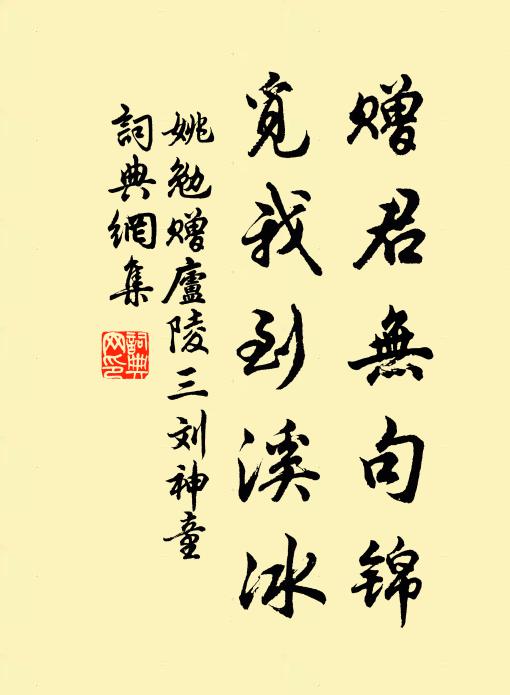 赠君無句锦
覓我到溪冰
姚勉赠廬陵三刘神童
詞典網集
詞典網印